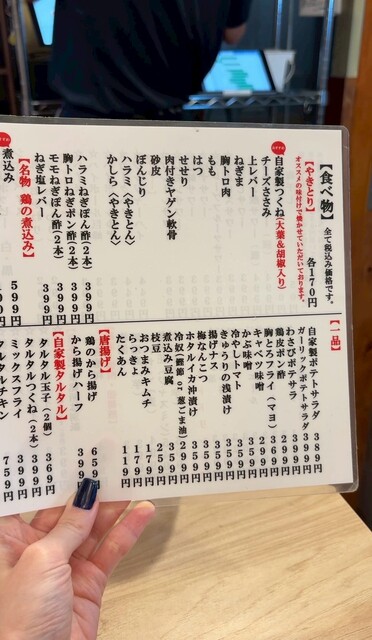 【食べ物】 全て税込み価格です。
【やきとり】 各170円
オススメの味付けで焼かせていただいております。
上レバー
チーズささみ
自家製つくね(大葉&胡椒入り)
ねぎま
胸トロ肉
もも
はつ
せせり
肉付きヤゲン軟骨
砂皮
ぼんじり
ハラミ〈やきとん〉
かしら〈やきとん〉
ハラミねぎぽん酢(2本) 399円
胸トロねぎポン酢(2本) 399円
モモねぎぽん酢(2本) 399円
ねぎ塩レバー 399円
【名物 鶏の煮込み】
煮込み 599円
【一品】
自家製ポテトサラダ 389円
ガーリックポテトサラダ
わさびポテサラ
鶏皮ポン酢
胸とろフライ(マヨ)
キャベツ味噌
かぶ味噌
冷やしトマト
きゅうりの浅漬け
揚げナス
梅なんこつ
ホタルイカ沖漬け
冷奴(鰹節 or 葱ごま油)
煮込み豆腐
枝豆
おつまみキムチ
らっきょ
たくあん 119円
【唐揚げ】
鶏のから揚げ
から揚げハーフ
【自家製タルタル】
タルタル玉子(2個) 369円
タルタルつくね(2本) 399円
ミックスフライ
タルタルチキン 759円